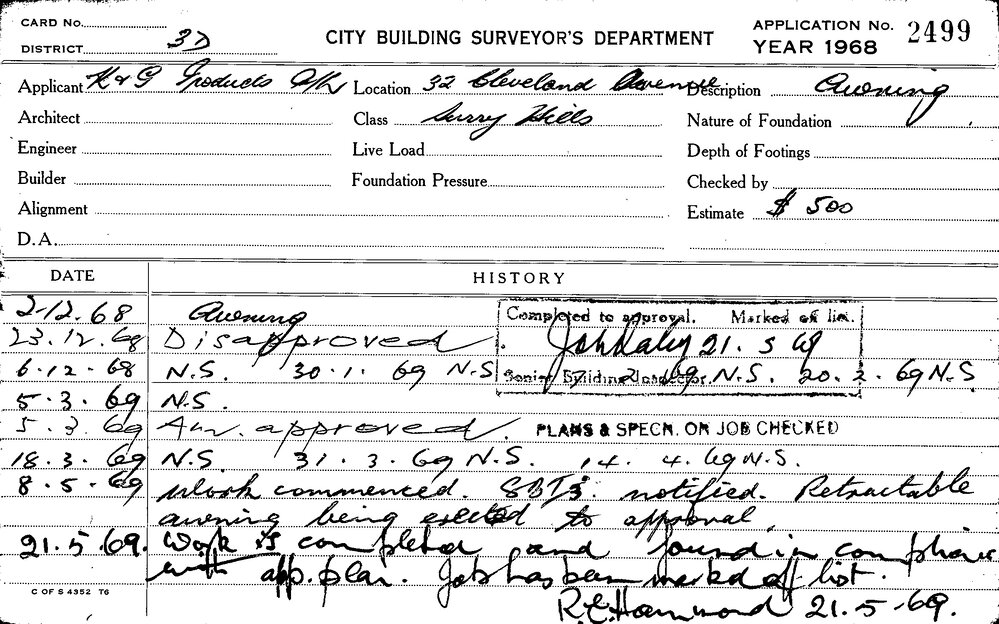 CARD No.
DISTRICT 3D
CITY BUILDING SURVEYOR'S DEPARTMENT
APPLICATION No. 2499
YEAR 1968
Applicant K & G Products P/L Location 32 Cleveland Avenue Description Awning
Architect Class Surry Hills Nature of Foundation
Engineer Live Load Depth of Footings
Builder Foundation Pressure Checked by
Alignment Estimate $ 500
D.A.
DATE HISTORY
2-12.68 Awning
Completed to approval. Marked off list.
23.12.68 Disapproved 21.5.69
6.12.68 N.S. 30.1.69 N.S. Senior Building Inspector. N.S. 20.2.69 N.S.
5.3.69 N.S.
5.3.69 Aw. approved. PLANS & SPECN. ON JOB CHECKED
18.3.69 N.S. 31.3.69 N.S. 14.4.69 N.S.
8.5.69 Work commenced. notified. Retractable
awning being erected to approval.
21.5.69. Work is completed and found in compliance
with app. plan. Job has been marked off list.
R.C. Hammond 21.5.69.
C OF S 4352 T6